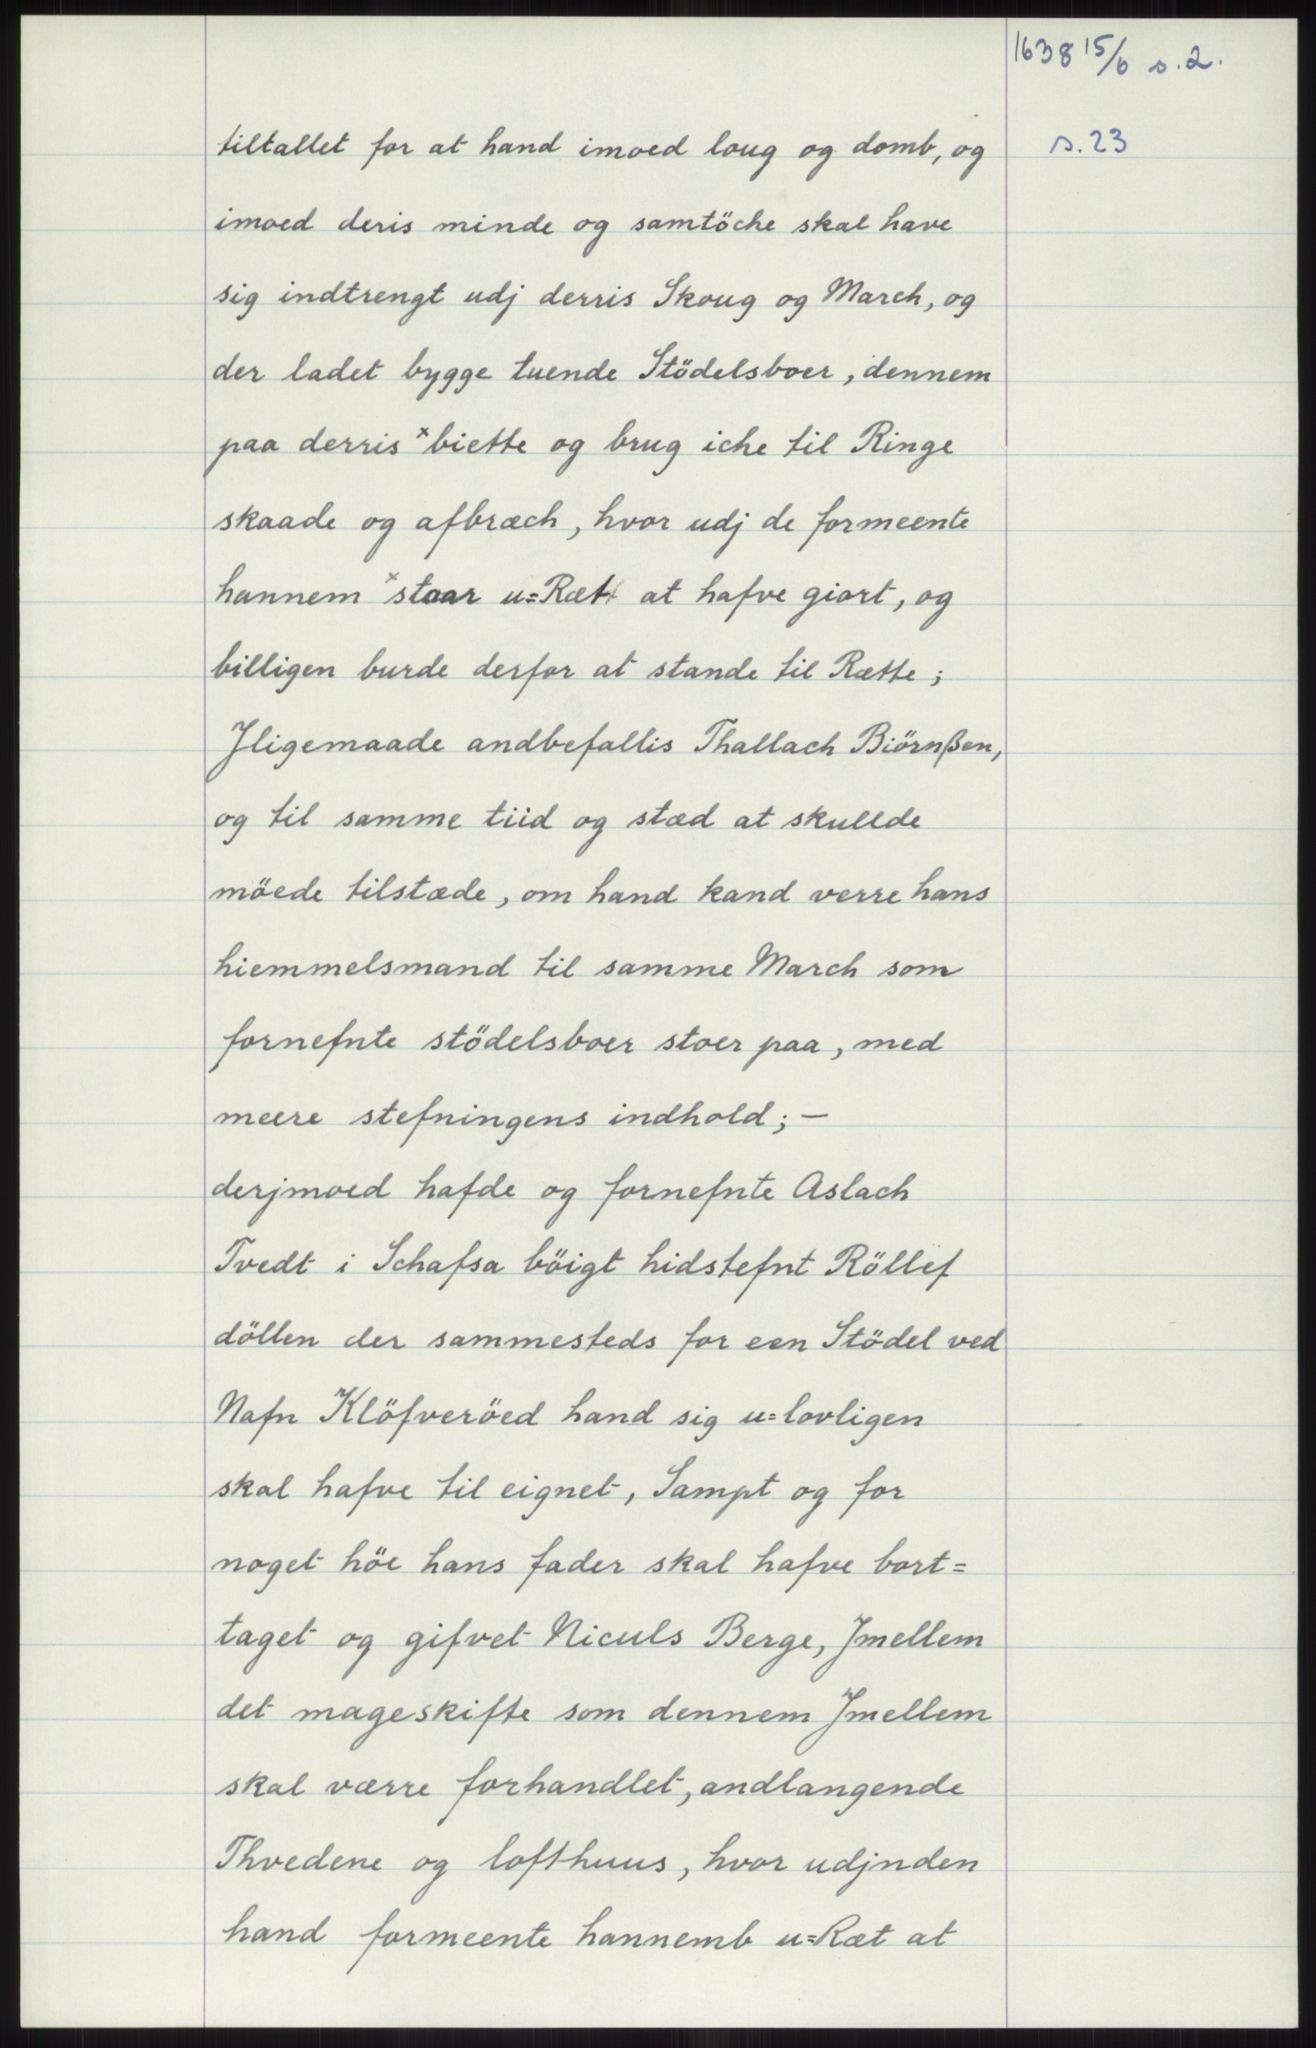 1638 15/6 s.2.
s.23
tiltallet for at hand imoed loug og domb, og
imoed deris minde og samtöche skal have
sig indtrengt udj derris Skoug og March, og
der ladet bygge tuende Stödelsboer, dennem
paa derris x biette og brug iche til Ringe
skaade og afbræch, hvor udj de formeente
hannem x staar u=Ræt at hafve giort, og
billigen burde derfor at stande til Rætte;
Jligemaade andbefallis Thallach Biörnßen,
og til samme tiid og stæd at skullde
möede tilstæde, om hand kand verre hans
hiemmelsmand til samme March som
fornefnte stödelsboer stoer paa, med
meere stefningens indhold; —
derjmoed hafde og fornefnte Aslach
Tvedt i Schafsa böigt hidstefnt Röllef
döllen der sammesteds for een Stödel ved
Nafn Klöfveröed hand sig u=lovligen
skal hafve til eignet, Sampt og for
noget höe hans fader skal hafve bort=
taget og gifvet Niculs Berge, Jmellem
det mageskifte som dennem Jmellem
skal værre forhandlet, andlangende
Thvedene og lofthuus, hvor udjnden
hand formeente hannemb u=Ræt at